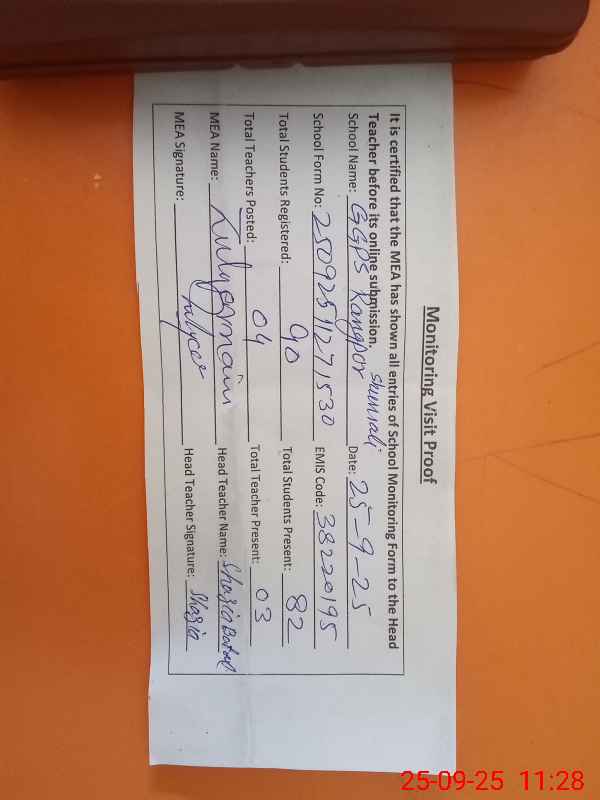 Monitoring Visit Proof
It is certified that the MEA has shown all entries of School Monitoring Form to the Head
Teacher before its online submission.
School Name: GGPS Rangpor Date: 25-9-25
School Form No: 25092511271530 EMIS Code: 38220195
Total Students Registered: 90 Total Students Present: 82
Total Teachers Posted: 04 Total Teacher Present: 03
MEA Name: Head Teacher Name: Shazia Batool
MEA Signature: Head Teacher Signature: Shazia
25-09-25 11:28